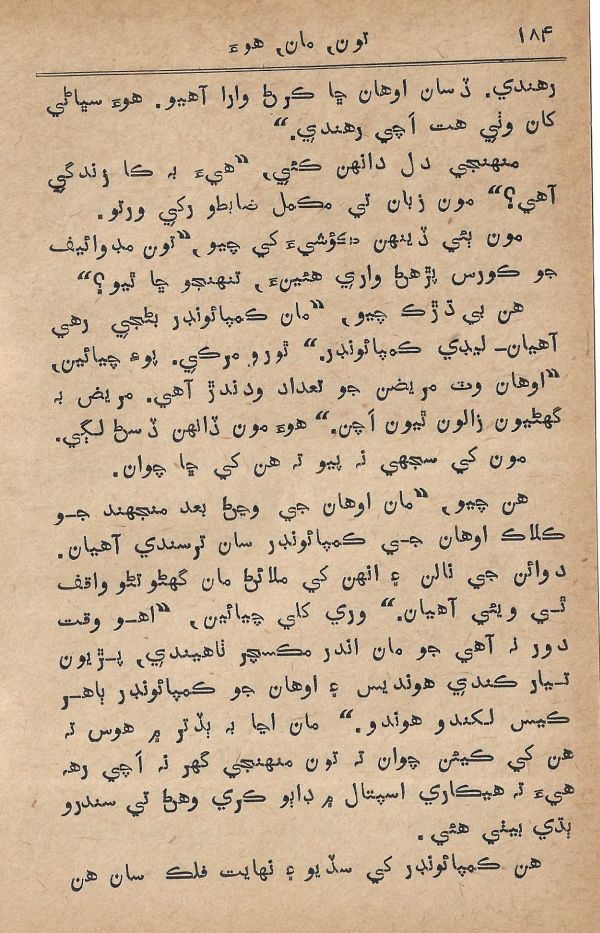 ۱۸۴
تون, مان, هوءَ
رهندي. ڏسان اوهان ڇا ڪرڻ وارا آهيو. هوءَ سڀاڻي
کان وٺي هت اَچي رهندي.“
منهنجي دل دانهن ڪئي, ”هيءَ بہ ڪا زندگي
آهي؟“ مون زبان تي مڪمل ضابطو رکي ورتو.
مون ٻئي ڏينهن کي چيو, ”تون مڊوائيف
جو ڪورس پڙهڻ واري هئينءَ, تنهنجو ڇا ٿيو؟“
هن بي ڌڙڪ چيو, ”مان ڪمپائونڊر بڻجي رهي
آهيان– ليڊي ڪمپائونڊر.“ ٿورو مرڪي. پوءِ چيائين,
”اوهان وٽ مريضن جو تعداد وڌندڙ آهي. مريض بہ
گهڻيون زالون ٿيون اَچن.“ هوءَ مون ڏانهن ڏسڻ لڳي.
مون کي سجهي نہ پيو تہ هن کي ڇا چوان.
هن چيو, ”مان اوهان جي وڃڻ بعد منجهند جـو
ڪلاڪ اوهان جـي ڪمپائونڊر سان ترسندي آهيان.
دوائن جي نالن ۽ انهن کي ملائڻ مان گهڻو تڻو واقف
ٿـي ويئي آهيان.“ وري کلي چيائين, ”اهـو وقت
دور نہ آهي جو مان اندر مڪسچر ٺاهيندي, پـڙيون
تـيار ڪندي هونديس ۽ اوهان جو ڪمپائونڊر ٻاهـر
ڪيس لکندو هوندو.“ مان اڃا بہ ٻڏتر ۾ هوس تہ
هن کي ڪيئن چوان تہ تون منهنجي گهر نہ اَچي رهہ
هيءَ تہ هيڪاري اسپتال ۾ دٻو ڪري وهڻ تي سندرو
ٻڌي بيٺي هئي.
هن ڪمپائونڊر کي سڏيو ۽ نهايت فلڪ سان هن